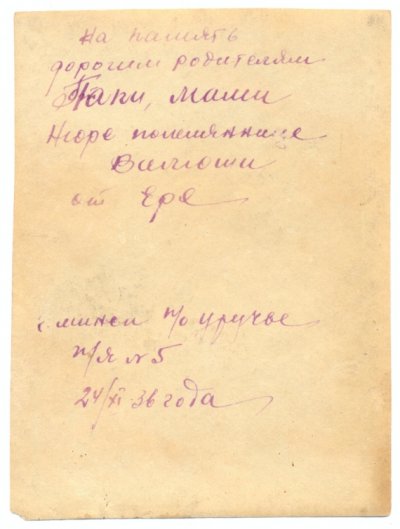 На память
дорогим родителям
Папи, мами
Нюре племяннице
Валюши
от Ере
г. минск п/о уручье
п/я N 5
24/XI 36 года